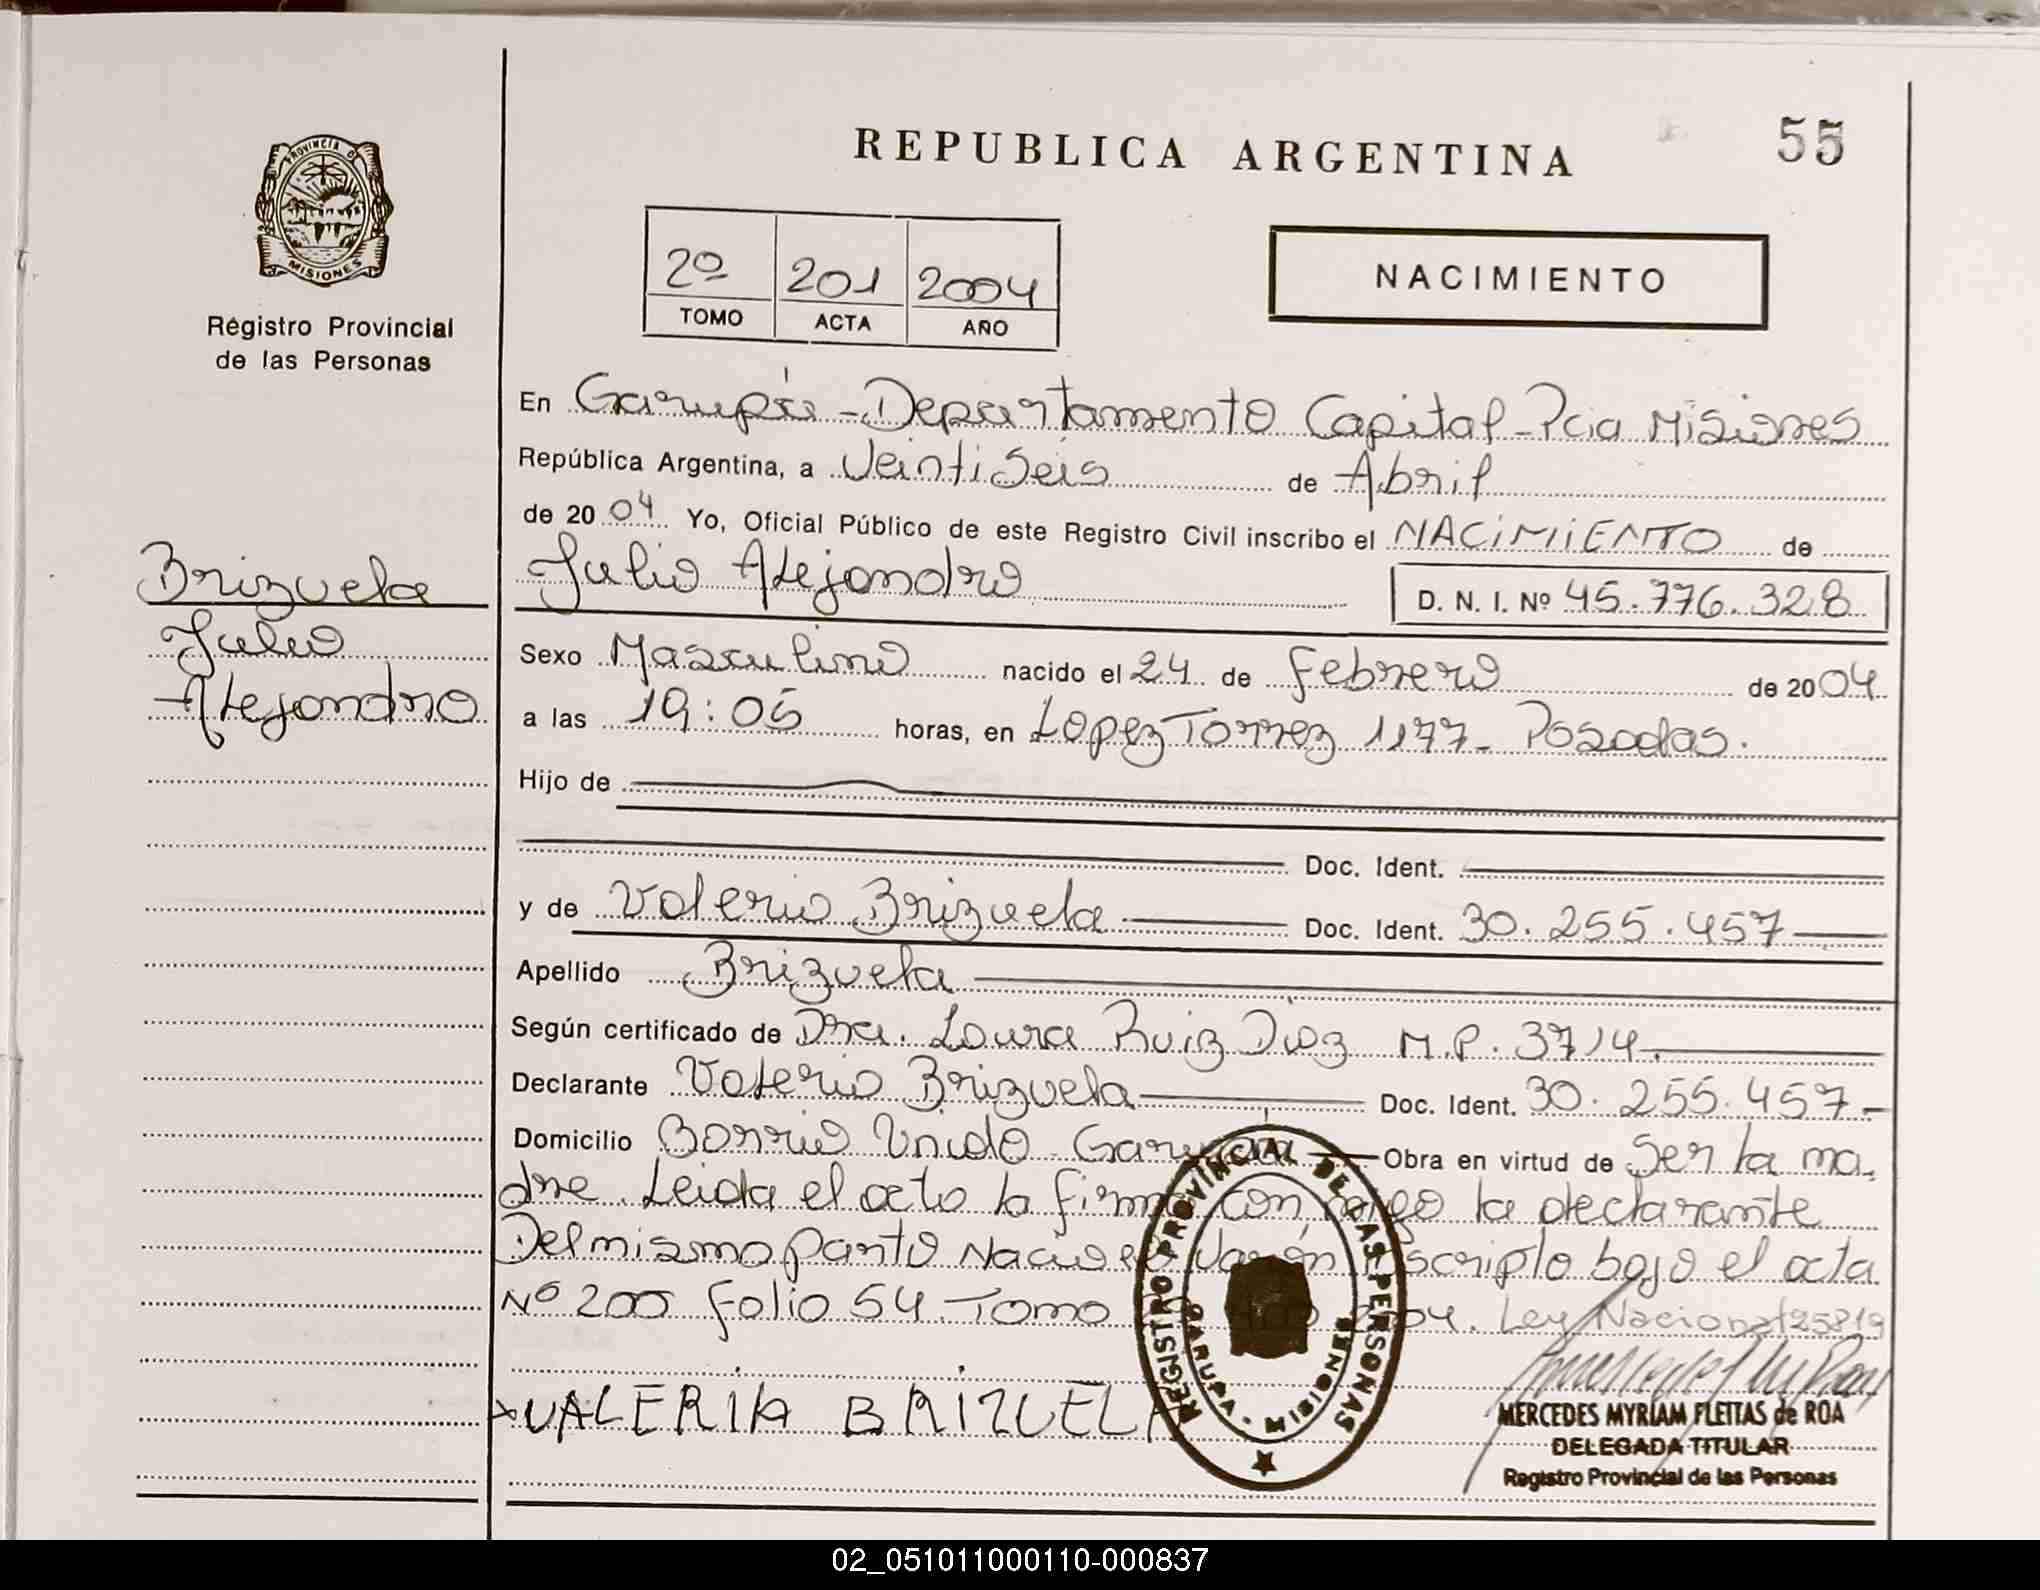 55
REPUBLICA ARGENTINA
PROVINCIA DE
MISIONES
Registro Provincial
de las Personas
2º 201 2004
TOMO ACTA AÑO
NACIMIENTO
En Garupá - Departamento Capital - Pcia Misiones
República Argentina, a Veinti Seis de Abril
de 20 04 Yo, Oficial Público de este Registro Civil inscribo el NACIMIENTO de
Julio Alejandro D. N. I. Nº 45.776.328
Brizuela
Julio
Alejandro
Sexo Masculino nacido el 24 de Febrero de 20 04
a las 19:05 horas, en Lopez Torrez 1177 - Posadas.
Hijo de
Doc. Ident.
y de Valeria Brizuela Doc. Ident. 30.255.457
Apellido Brizuela
Según certificado de Dra. Laura Ruiz Diaz M.P. 3714.
Declarante Valeria Brizuela Doc. Ident. 30.255.457 -
Domicilio Barrio Unido Garupa Obra en virtud de Ser la ma-
dre. Leida el acta la firma con migo la declarante
Del mismo parto Nacio el Varón scripto bajo el acta
Nº 200 Folio 54. Tomo 2004. Ley Nacional 25819
x VALERIA BRIZUELA
REGISTRO PROVINCIAL DE LAS PERSONAS
GARUPA - MISIONES
MERCEDES MYRIAM FLEITAS de ROA
DELEGADA TITULAR
Registro Provincial de las Personas
02_051011000110-000837